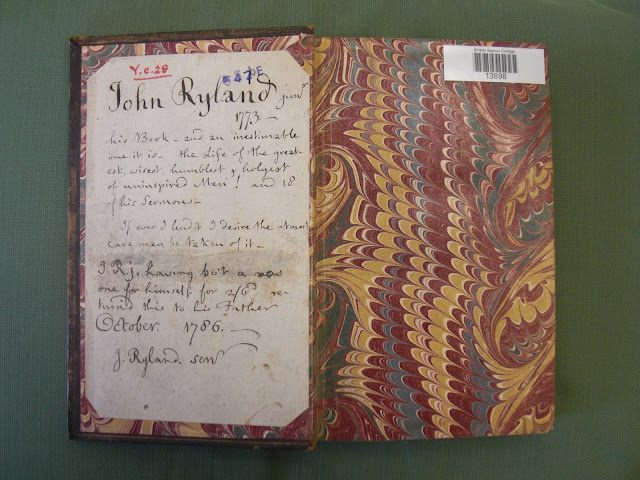 Y.c.29
John Ryland junr
1773 —
his Book — and an inestimable
one it is — the Life of the great-
est, wisest, humblest & holyest
of uninspired Men! and 18
of his Sermons —
If ever I lend it I desire the utmost
Care may be taken of it —
J. R. j. having bot a new
one for himself for 2/6d re-
turned this to his Father
October 1786. —
J. Ryland. senr
Bristol Baptist College
13898